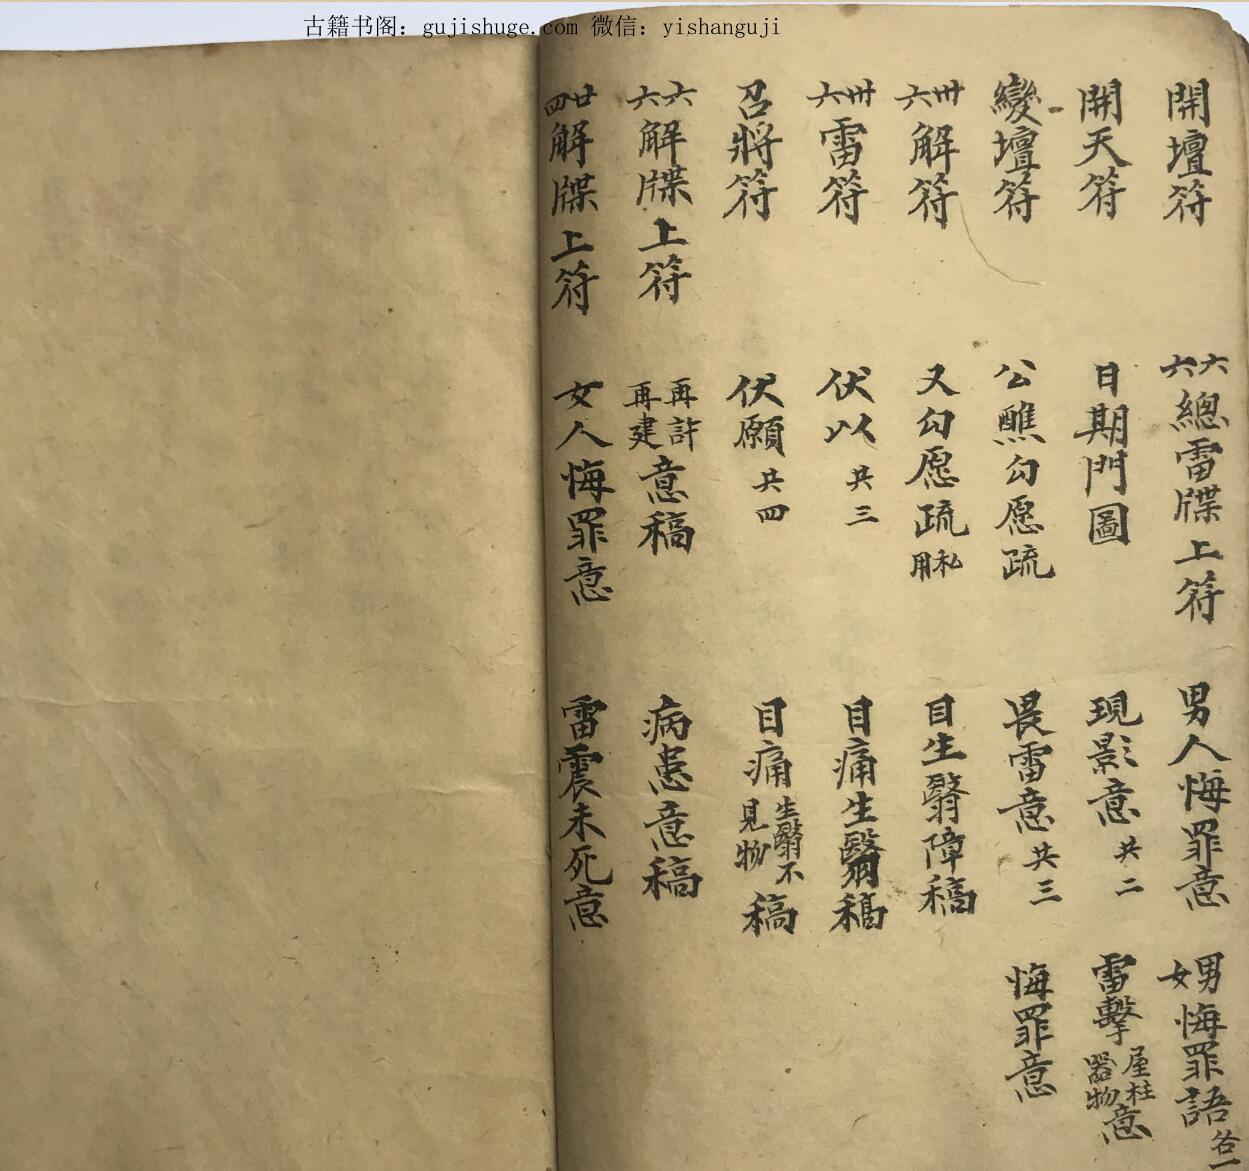 古籍书阁：gujishuge.com 微信：yishanguji
開壇符
開天符
變壇符
卅六解符
卅六雷符
召將符
六六解牒上符
廿四解牒上符
六六總雷牒上符
日期門圖
公醮勾愿疏
又勾愿疏私用
伏以共三
伏願共四
再許再建意稿
女人悔罪意
男人悔罪意
現影意共二
畏雷意共三
目生翳障稿
目痛生翳稿
目痛生翳不見物稿
病患意稿
雷震未死意
男女悔罪語各一
雷擊屋柱器物意
悔罪意